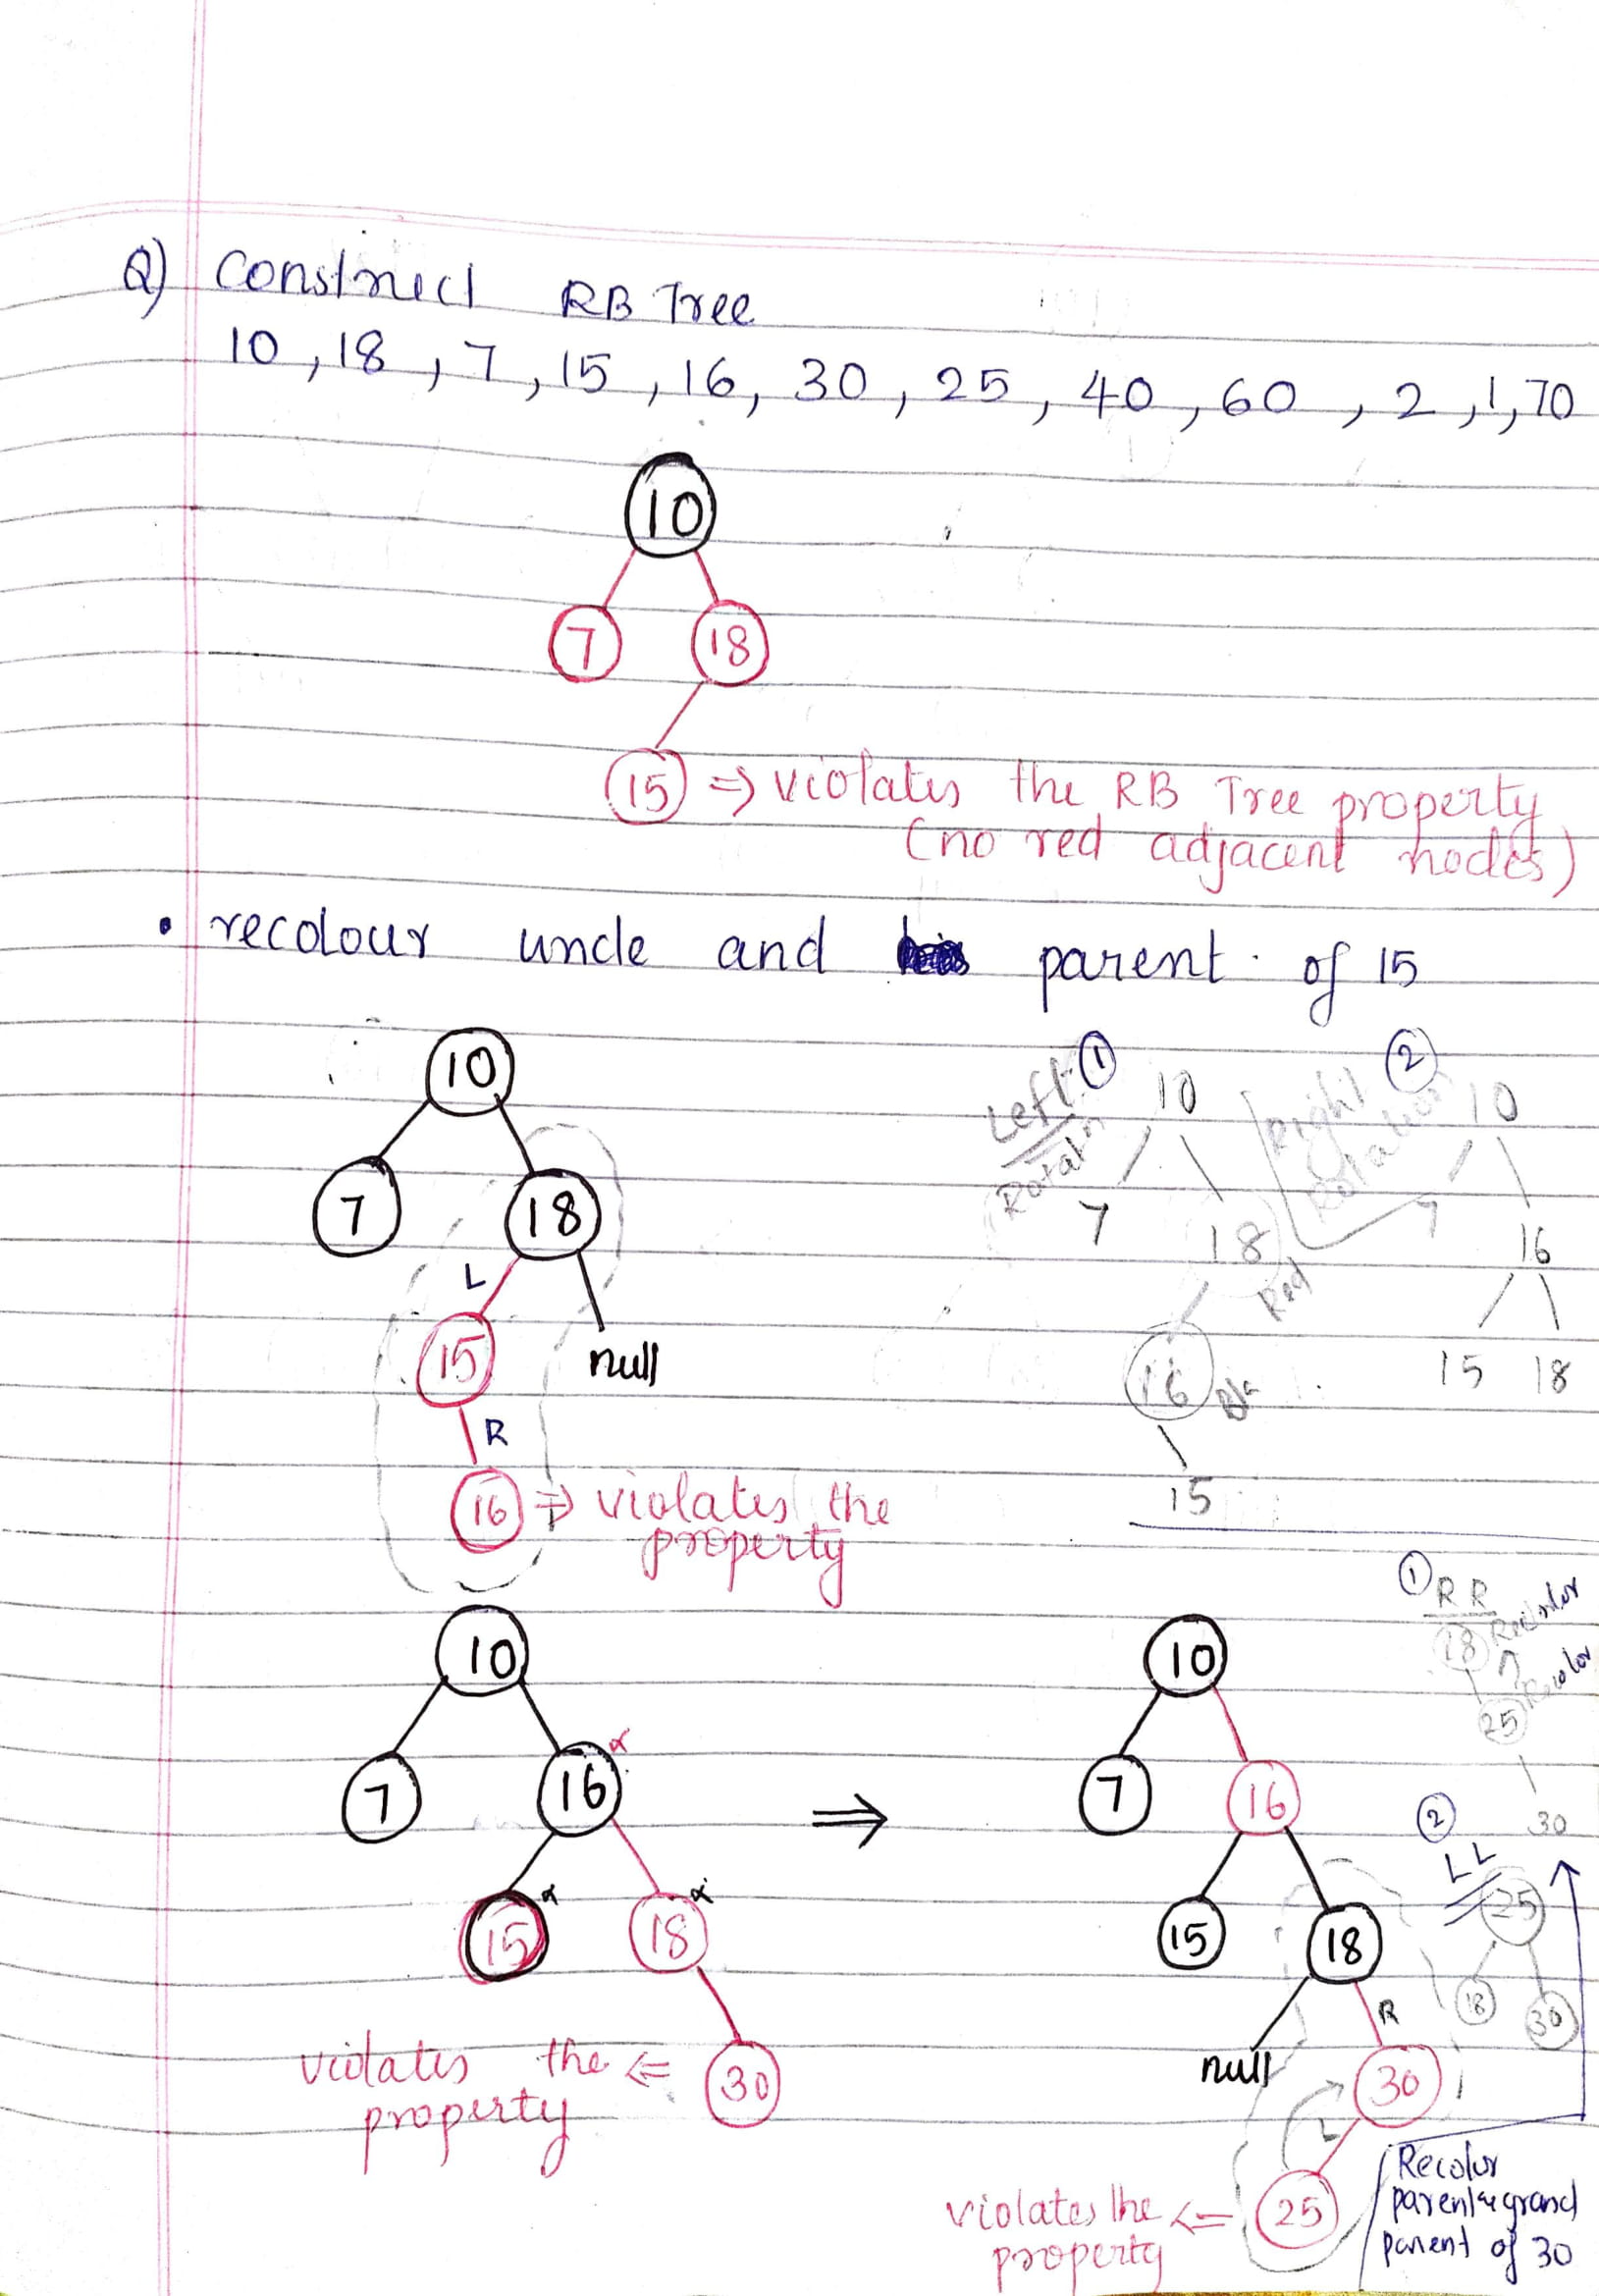 Q) Construct RB Tree
10, 18, 7, 15, 16, 30, 25, 40, 60, 2, 1, 70
10
7 18
15 => violates the RB Tree property
(no red adjacent nodes)
• recolour uncle and parent of 15
10
7 18
L
15 null
R
16 => violates the
property
① Left Rotatn
10
7 18 Red
16
15
② Right Rotation
10
7 16
15 18
10
7 16
15 18
violates the <= 30
property
=>
10
7 16
15 18
R
null 30
L
violates the <= 25
property
① RR
18 Recolor
25 Recolor
30
② LL
25
18 30
Recolor
parent & grand
parent of 30